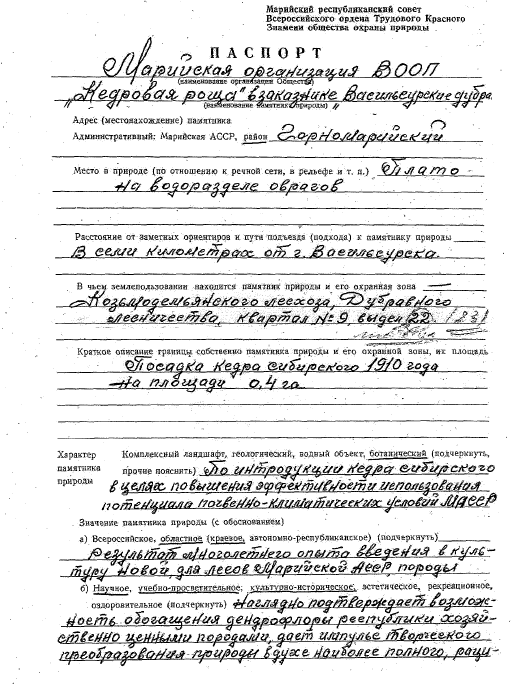 Марийский республиканский совет
Всероссийского ордена Трудового Красного
Знамени общества охраны природы
ПАСПОРТ
Марийская организация ВООП
(наименование организации Общества)
„Кедровая роща" в заказнике Васильсурские дубра.
(наименование памятника природы)
Адрес (местонахождение) памятника
Административный: Марийская АССР, район Горномарийский
Место в природе (по отношению к речной сети, в рельефе и т. п.) Плато
на водоразделе оврагов
Расстояние от заметных ориентиров и пути подъезда (подхода) к памятнику природы
В семи километрах от г. Васильсурска.
В чьем землепользовании находится памятник природы и его охранная зона
Козьмодемьянского лесхоза, Дубравного
лесничества, квартал № 9, выдел 22
Краткое описание границы собственно памятника природы и его охранной зоны, их площадь
Посадка кедра сибирского 1910 года
на площади 0,4 га
Характер памятника природы
Комплексный ландшафт, геологический, водный объект, ботанический (подчеркнуть,
прочие пояснить) По интродукции кедра сибирского
в целях повышения эффективности использования
потенциала почвенно-климатических условий МАССР
Значение памятника природы (с обоснованием)
а) Всероссийское, областное (краевое, автономно-республиканское) (подчеркнуть)
Результат многолетнего опыта введения в куль-
туру новой для лесов Марийской АССР, породы
б) Научное, учебно-просветительное, культурно-историческое, эстетическое, рекреационное,
оздоровительное (подчеркнуть) Наглядно подтверждает возмож-
ность обогащения дендрофлоры республики хозяй-
ственно ценными породами, дает импульс творческого
преобразования природы в духе наиболее полного, раци-